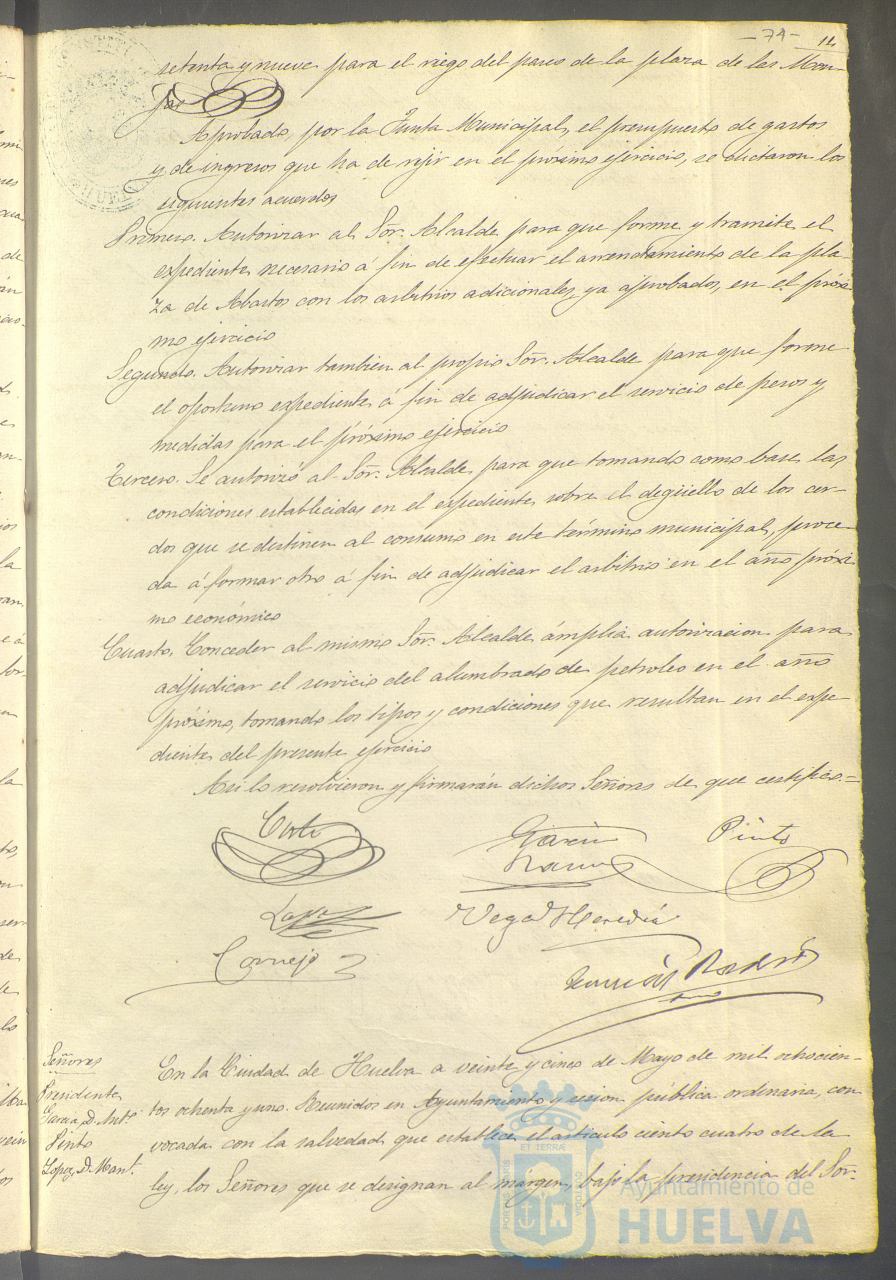 -74- 14
setenta y nueve para el riego del paseo de la plaza de las Mon-
jas
Aprobado, por la Junta Municipal, el presupuesto de gastos
y de ingresos que ha de rejir en el próximo ejercicio, se dictaron los
siguientes acuerdos
Primero. Autorizar al Sor. Alcalde para que forme y tramite el
expediente necesario á fin de efectuar el arrendamiento de la pla-
za de Abastos con los arbitrios adicionales, ya aprobados, en el próxi
mo ejercicio
Segundo. Autorizar tambien al propio Sor. Alcalde para que forme
el oportuno expediente á fin de adjudicar el servicio de pesos y
medidas para el próximo ejercicio
Tercero. Se autorizó al Sor. Alcalde, para que tomando como base las
condiciones establecidas en el expediente sobre el degüello de los cer-
dos que se destinen al consumo en este término municipal, proce-
da á formar otro á fin de adjudicar el arbitrio en el año próxi
mo económico
Cuarto. Conceder al mismo Sor. Alcalde ámplia autorizacion para
adjudicar el servicio del alumbrado de petroleo en el año
próximo, tomando los tipos y condiciones que resultan en el expe-
diente del presente ejercicio
Asi lo resolvieron y firmarán dichos Señores de que certifico.=
Garcia Pinto
Ramos
Lopez Vega Heredia
Cornejo
Señores
Presidente
Garcia, D. Anto.
Pinto
Lopez, D. Manl.
En la Ciudad de Huelva a veinte y cinco de Mayo de mil ochocien-
tos ochenta y uno. Reunidos en Ayuntamiento y sesion pública ordinaria, con
vocada con la salvedad que establece el articulo ciento cuatro de la
ley, los Señores que se designan al margen, bajo la presidencia del Sor.
PORTUS MARIS ET TERRÆ CUSTODIA
Ayuntamiento de
HUELVA